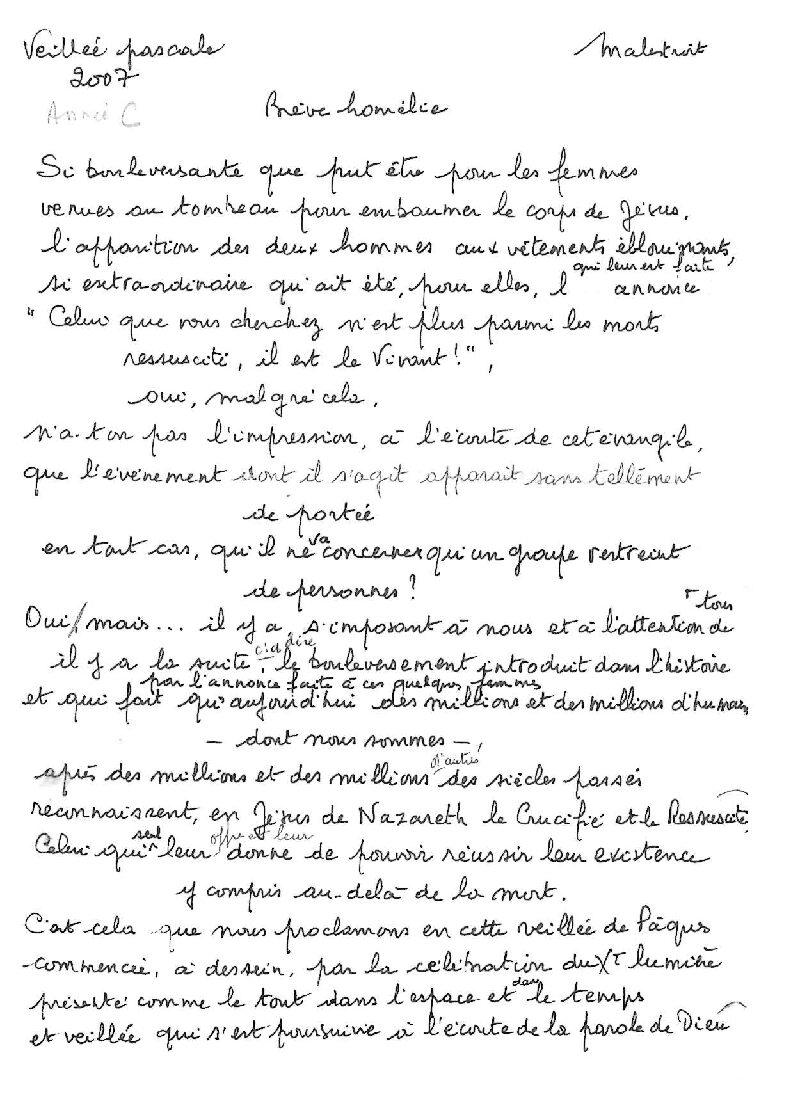 Veilleé pascale Malestroit
2007
Année C
Brève homélie
Si bouleversante que put être pour les femmes
venues au tombeau pour embaumer le corps de Jésus,
l'apparition des deux hommes aux vêtements éblouissants,
qui leur est faite
si extraordinaire qu'ait été, pour elles, l'annonce
" Celui que vous cherchez n'est plus parmi les morts
ressuscité, il est le Vivant ! " ,
oui, malgré cela,
n'a-t-on pas l'impression, à l'écoute de cet évangile,
que l'événement dont il s'agit apparait sans tellement
de porteé
va
en tout cas, qu'il ne concerner qu'un groupe restreint
de personnes ?
tous
Oui / mais ... il y a s'imposant à nous et à l'attention de
il y a la suite : le bouleversement introduit dans l'histoire
par l'annonce faite à ces quelques femmes
et qui fait qu'aujourd'hui des millions et des millions d'humains
– dont nous sommes – ,
d'autres
après des millions et des millions des siècles passés
reconnaissent, en Jésus de Nazareth le Crucifié et le Ressuscité,
seul offre et leur
Celui qui leur donne de pouvoir réussir leur existence
y compris au-delà de la mort.
C'est cela que nous proclamons en cette veillée de Pâques
commencée, à dessein, par la célébration du Xt lumière
dans
présenté comme le tout dans l'espace et le temps
et veillée qui s'est poursuivie à l'écoute de la parole de Dieu